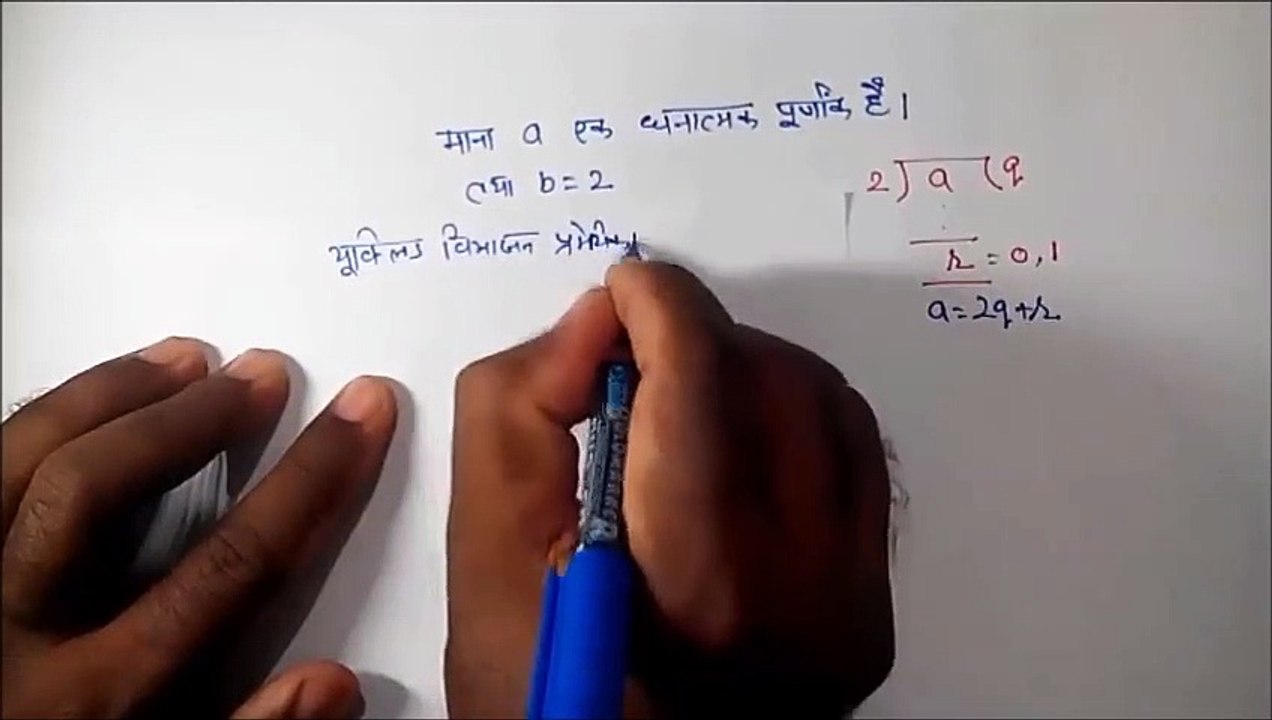 माना a एक धनात्मक पूर्णांक है।
तथा b = 2
यूक्लिड विभाजन प्रमेयिका
2 ) a ( q
r = 0, 1
a = 2q + r